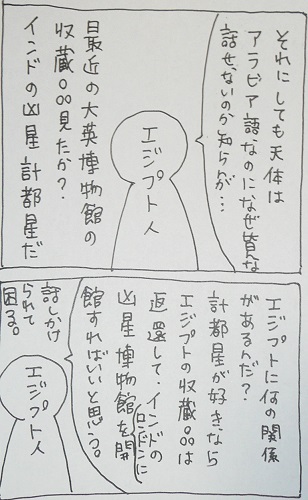 それにしても天体は
アラビア語なのになぜ皆んな
話せないのか知らんが…
エジプト人
最近の大英博物館の
収蔵品見たか?
インドの凶星計都星だ
エジプトに何の関係
があるんだ?
計都星が好きなら
エジプトの収蔵品は
返還して、インドの
ロンドンに
凶星博物館を開
館すればいいと思う。
話しかけ
られて
困る。
エジプト人